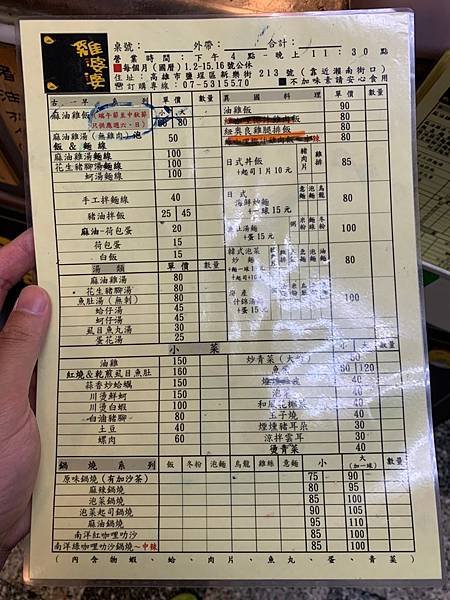 雞婆婆
桌號： 外帶： 合計：
營業時間：下午4點-晚上11:30點
■每個月(國曆)1.2-15.16號公休
住址：高雄市鹽埕區新樂街213號(靠近瀨南街口)
☎訂購專線：07-5315570 ■不加味素請安心食用
古早 單價 數量
麻油雞飯(端午節至中秋節只供應週六、日) 小 大 80
麻油雞湯(無雞肉)泡飯&麵線 50
麻油雞湯麵線 100
花生豬腳湯麵線 100
蚵湯麵線
手工拌麵線 40
豬油拌飯 25 45
麻油-荷包蛋 20
荷包蛋 15
白飯 15
湯類 單價 數量
麻油雞湯 80
花生豬腳湯 80
魚肚湯(無刺) 80
蛤仔湯 45
蚵仔湯 45
虱目魚丸湯 30
蛋花湯 25
異國料理 單價 數量
油雞飯 90
雞腿排飯
日式丼飯 豬肉片 雞排 85
+起司1片10元
日式海鮮炒麵 80
+一球15元
魚肚湯麵 100
+蛋15元
韓式泡菜炒麵 80
什錦湯 100
+蛋15元
小菜
油雞 150
紅燒&乾煎虱目魚肚 160
蒜香炒蛤蠣 150
川燙鮮蚵 150
川燙白蝦 100
白滷豬腳 100
土豆 40
螺肉 60
小 大 數量
炒青菜(大) 50
魚 60 120
玉子燒 40
煙燻豬耳朵 30
涼拌雲耳 30
燙青菜 40
鍋燒系列 飯 冬粉 泡麵 烏龍 雞絲 意麵 小 大(加一球) 數量
原味鍋燒(有加沙茶) 75 90
麻辣鍋燒 80 95
泡菜鍋燒 85 100
泡菜起司鍋燒 90 105
麻油鍋燒 95 110
南洋紅咖哩叻沙 85 100
南洋綠咖哩叻沙鍋燒~中辣 85 100
(內含物蝦、蛤、肉片、魚丸、蛋、青菜)